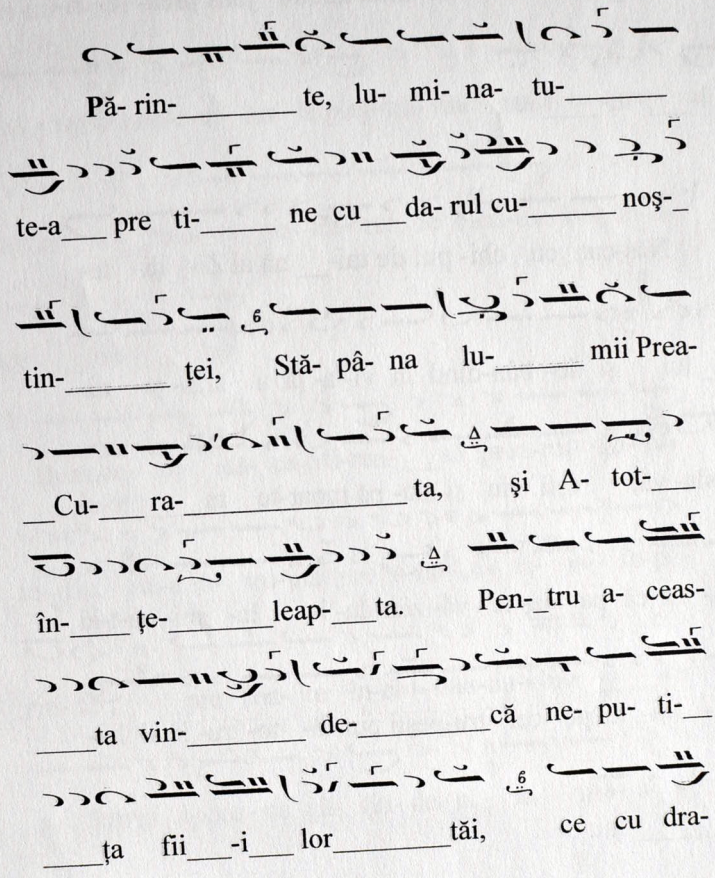 Pă- rin-____ te, lu- mi- na- tu-____
te-a__ pre ti-___ ne cu__da- rul cu-____ noş-_
tin-____ ţei, Stă- pâ- na lu-____ mii Prea-
__Cu- ra-________ ta, şi A- tot-__
în-___ ţe-____leap-__ta. Pen- tru a- ceas-
___ta vin-_____ de-_____că ne- pu- ti-_
___ţa fii__-i__ lor_____tăi, ce cu dra-